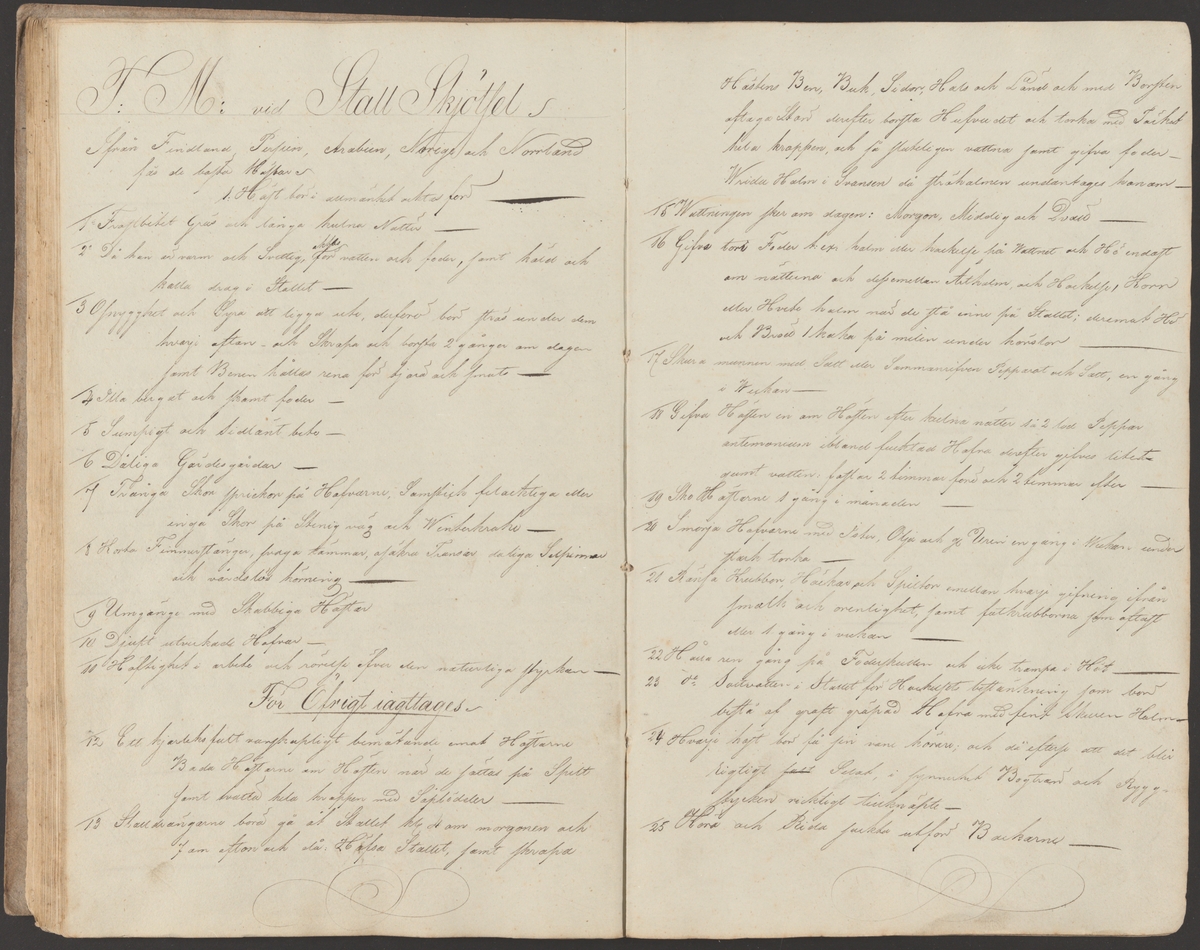 T: M: vid Stall Skjötsel
Ifrån Finnland, Persien, Arabien, Norege och Norrland
fås de bästa Hästar
1. Häst bör i allmänhet aktas för —
1o Frostbitet Gräs och långa kulna Nätter —
2o Då han är varm och Svettig, för vatten och foder, samt håld och
kalla drag i Stallet —
3 Osnygghet och Dyra att ligga uti, derföre bör strös under dem
hvarje afton och Skrapa och borsta 2 gånger om dagen
samt Benen hållas rena för och smuts —
4 Illa bergat och skamt foder —
5 Sumpigt och sidlänt bete —
6 Dåliga Gärdesgårdar —
7 Trånga Skor sprickor på Hofvarne, felacktiga eller
inga Skor på Stenig väg och Winterhalka —
8 Korta Fimmerstänger, svaga osäkra Transar, dåliga
och vårdslös körning —
9 Umgänge med Skabbiga Hästar
10 Djupt utverkade Hofvar —
11 Häftighet i arbete och rörelse öfver den naturliga styrkan —
För Öfrigt iagttages
12 Ett kjerleksfullt vänskapligt bemötande emot Hästarne
Bada Hästarne om Hösten när de sättas på Spilt
samt tvätta hela kroppen med
13 Stalldrängarne böra gå åt Stallet kl. 4 om morgonen och
om afton och då: Stallet, samt skrapa
Hästens Ben, Buk, Sidor, Hals och Länd och med Borsten
aftaga derefter borsta Hufvudet och torka med Täcket
hela kroppen, och så vattna samt gifva foder —
Wrida Halm i Svansen då undantages —
15 Wattningen sker om dagen: Morgon, Middag och Qväll —
16 Gifva tort Foder t:ex: halm eller hackelse på Wattnet och Hö endast
om nätterna och dessemellan Ärthalm, och Hackelse, Korn
eller Hvete halm när de stå inne på Stallet; deremot Hö
och Bröd 1 kaka på milen under körslor —
17 Skura munnen med Salt eller Sammanrifven Pepparrot och Salt, en gång
i Weckan —
18 Gifva Hästen en om Hösten efter kulna nätter så 2 lod Peppar
antimonium ibland fucktad Hafra derefter gifves litet
vatten: 2 timmar före och 2 timmar efter —
19 Sko Hästarne 1 gång i månaden —
20 Smörja Hofvarne med Ister, Olja och Urin en gång i Weckan under
stark torka —
21 Ränsa Krubbor, Häckar och Spiltor emellan hvarje gifning ifrån
smolk och orenlighet, samt krubborna som oftast
eller 1 gång i veckan —
22 Hålla ren gång på Foderskullen och icke trampa i Höet —
23 do Saltvatten i Stallet för Hackelsets bestänkning som bör
bestå af groft gröpad Hafra med fint Skuren Halm —
24 Hvarje häst bör få sin vane körare; och då efterse att det blir
rigtigt Selad, i synnerhet Bogträn och Rygg-
stycken ricktigt tillknäpte —
25 Köra och Rida sackta utför Backarne —